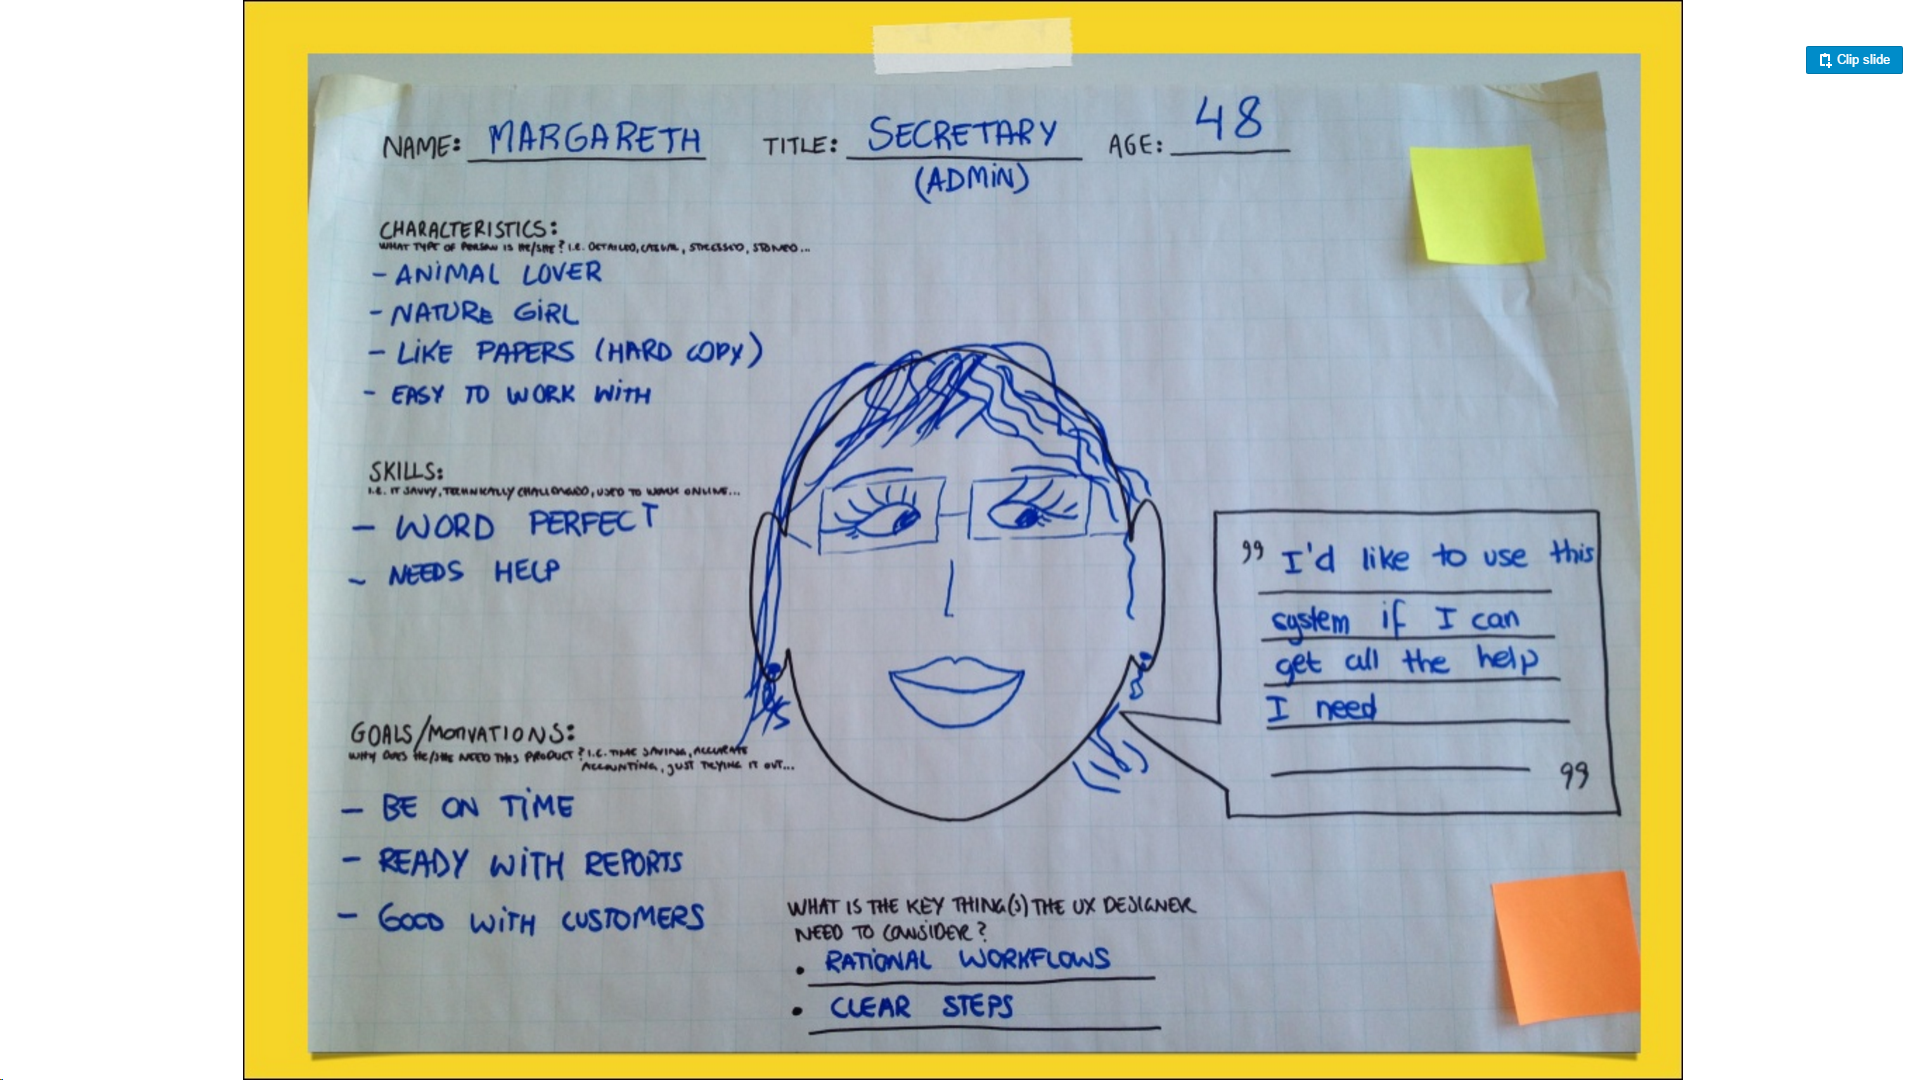 Clip slide
NAME: MARGARETH TITLE: SECRETARY AGE: 48
(ADMIN)
CHARACTERISTICS:
WHAT TYPE OF PERSON IS HE/SHE? I.E. DETAILED, CASUAL, STRESSED, STONED...
- ANIMAL LOVER
- NATURE GIRL
- LIKE PAPERS (HARD COPY)
- EASY TO WORK WITH
SKILLS:
I.E. IT SAVVY, TECHNICALLY CHALLENGED, USED TO WORK ONLINE...
- WORD PERFECT
~ NEEDS HELP
GOALS/MOTIVATIONS:
WHY DOES HE/SHE NEED THIS PRODUCT? I.E. TIME SAVING, ACCURATE
ACCOUNTING, JUST TRYING IT OUT...
- BE ON TIME
- READY WITH REPORTS
- GOOD WITH CUSTOMERS
„ I'd like to use this
system if I can
get all the help
I need
”
WHAT IS THE KEY THING(S) THE UX DESIGNER
NEED TO CONSIDER?
• RATIONAL WORKFLOWS
• CLEAR STEPS